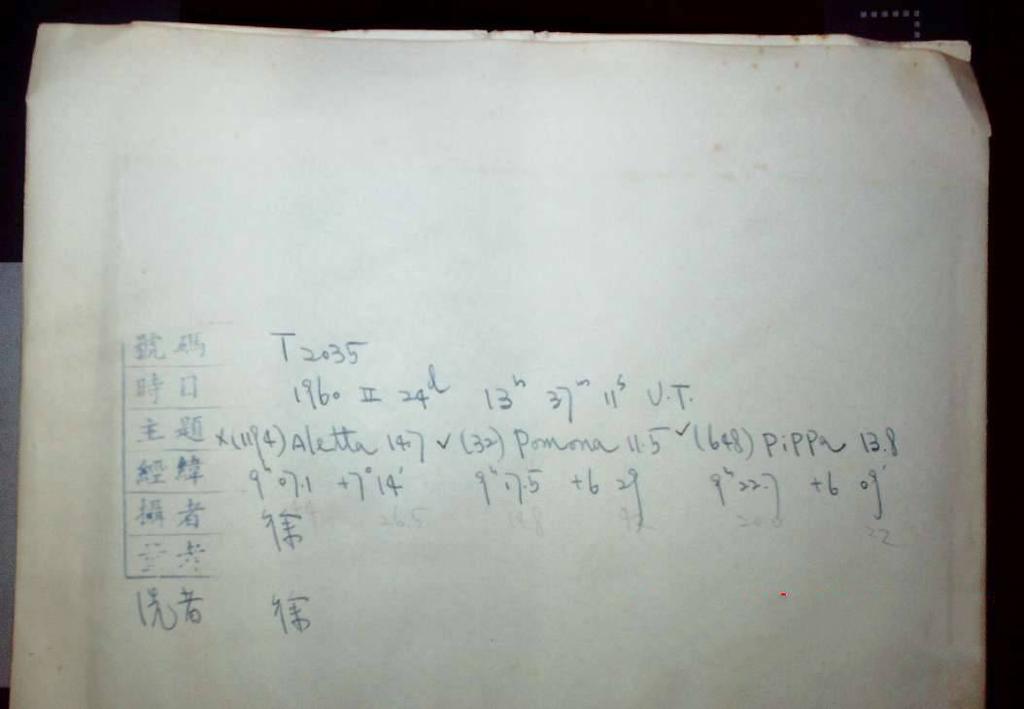 號碼 T2035
時日 1960 II 24d 13h 37m 11s U.T.
主題 ×(1194) Aletta 14.7 ✓(32) Pomona 11.5 ✓(648) Pippa 13.8
經緯 9h 07.1 +7°14' 9h 17.5 +6 29 9h 22.7 +6 09'
攝者 徐
洗者 徐